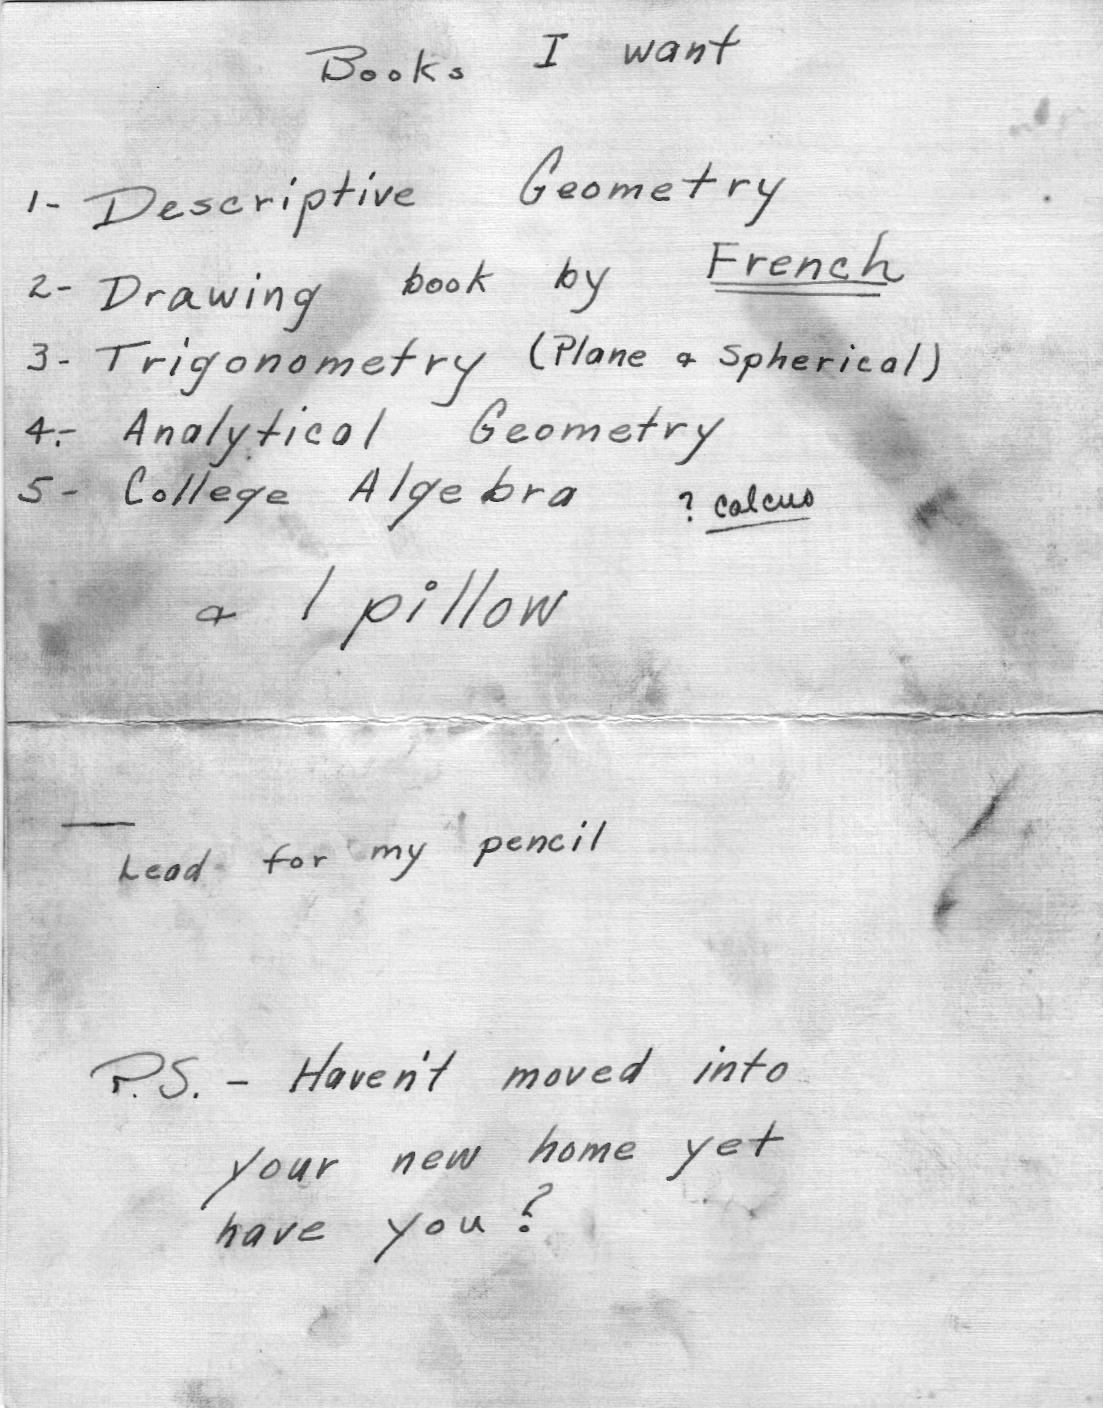 Books I want
1- Descriptive Geometry
2- Drawing book by French
3- Trigonometry (Plane & Spherical)
4.- Analytical Geometry
5- College Algebra ? calcus
& 1 pillow
Lead for my pencil
P.S. - Haven't moved into
your new home yet
have you?